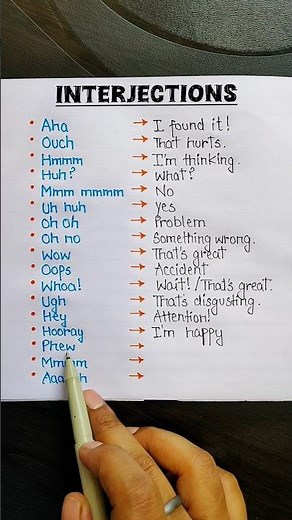 INTERJECTIONS
• Aha → I found it!
• Ouch → That hurts.
• Hmmm → I'm thinking.
• Huh? → What?
• Mmm mmmm → No
• Uh huh → Yes
• Oh oh → Problem
• Oh no → Something wrong.
• Wow → That's great
• Oops → Accident
• Whoa! → Wait! / That's great.
• Ugh → That's disgusting.
• Hey → Attention!
• Hooray → I'm happy
• Phew →
• →
• →